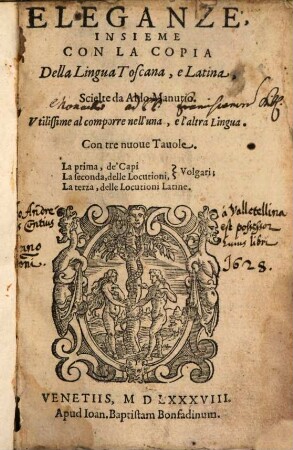 ELEGANZE,
INSIEME
CON LA COPIA
Della Lingua Toscana, e Latina,
Scielte da Aldo Manutio.
Vtilissime al comporre nell'vna, e l'altra Lingua.
Con tre nuoue Tauole.
La prima, de' Capi
La seconda, delle Locutioni, } Volgari;
La terza, delle Locutioni Latine.
Andre
à Valletellina
est possessor
huius libri
1628.
VENETIIS, M D LXXXVIII.
Apud Ioan. Baptistam Bonfadinum.